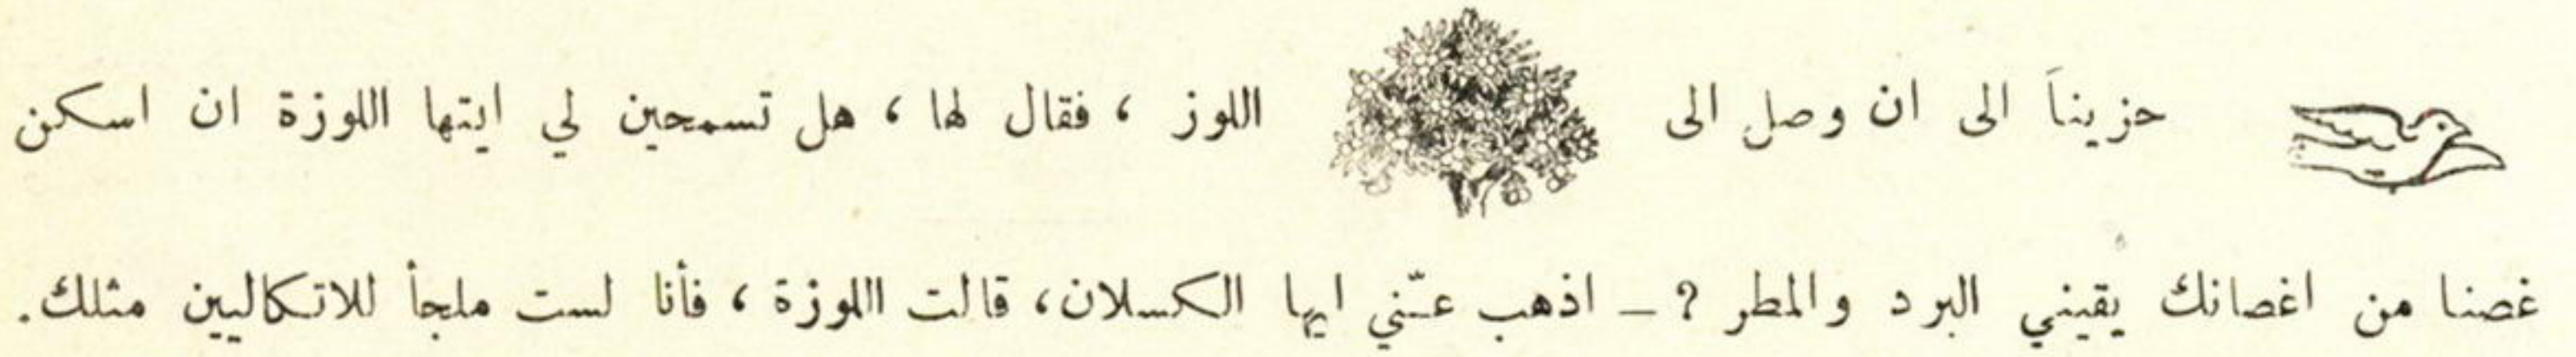 حزيناً الى ان وصل الى اللوز ، فقال لها ، هل تسمحين لي ايتها اللوزة ان اسكن
غصنا من اغصانك يقيني البرد والمطر ? — اذهب عنّي ايها الكسلان، قالت اللوزة ، فأنا لست ملجأ للاتكاليين مثلك.